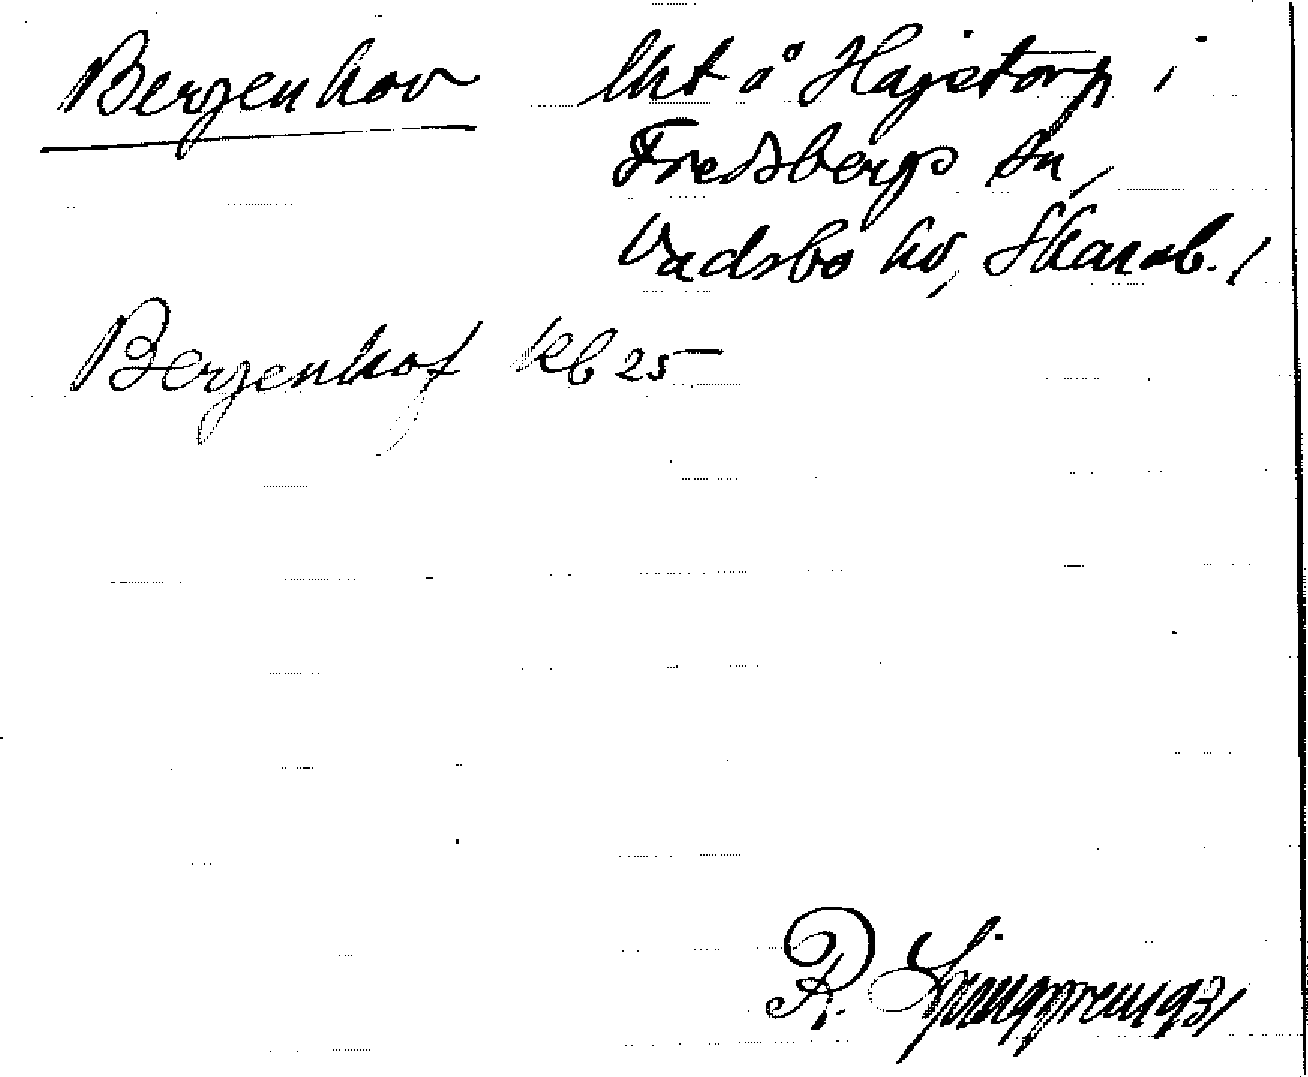 Bergenhov lht å Hajstorp i
Fredsbergs sn,
Vadsbo hd, Skarab. l
Bergenhof kb 25
R. Ljunggren 1931